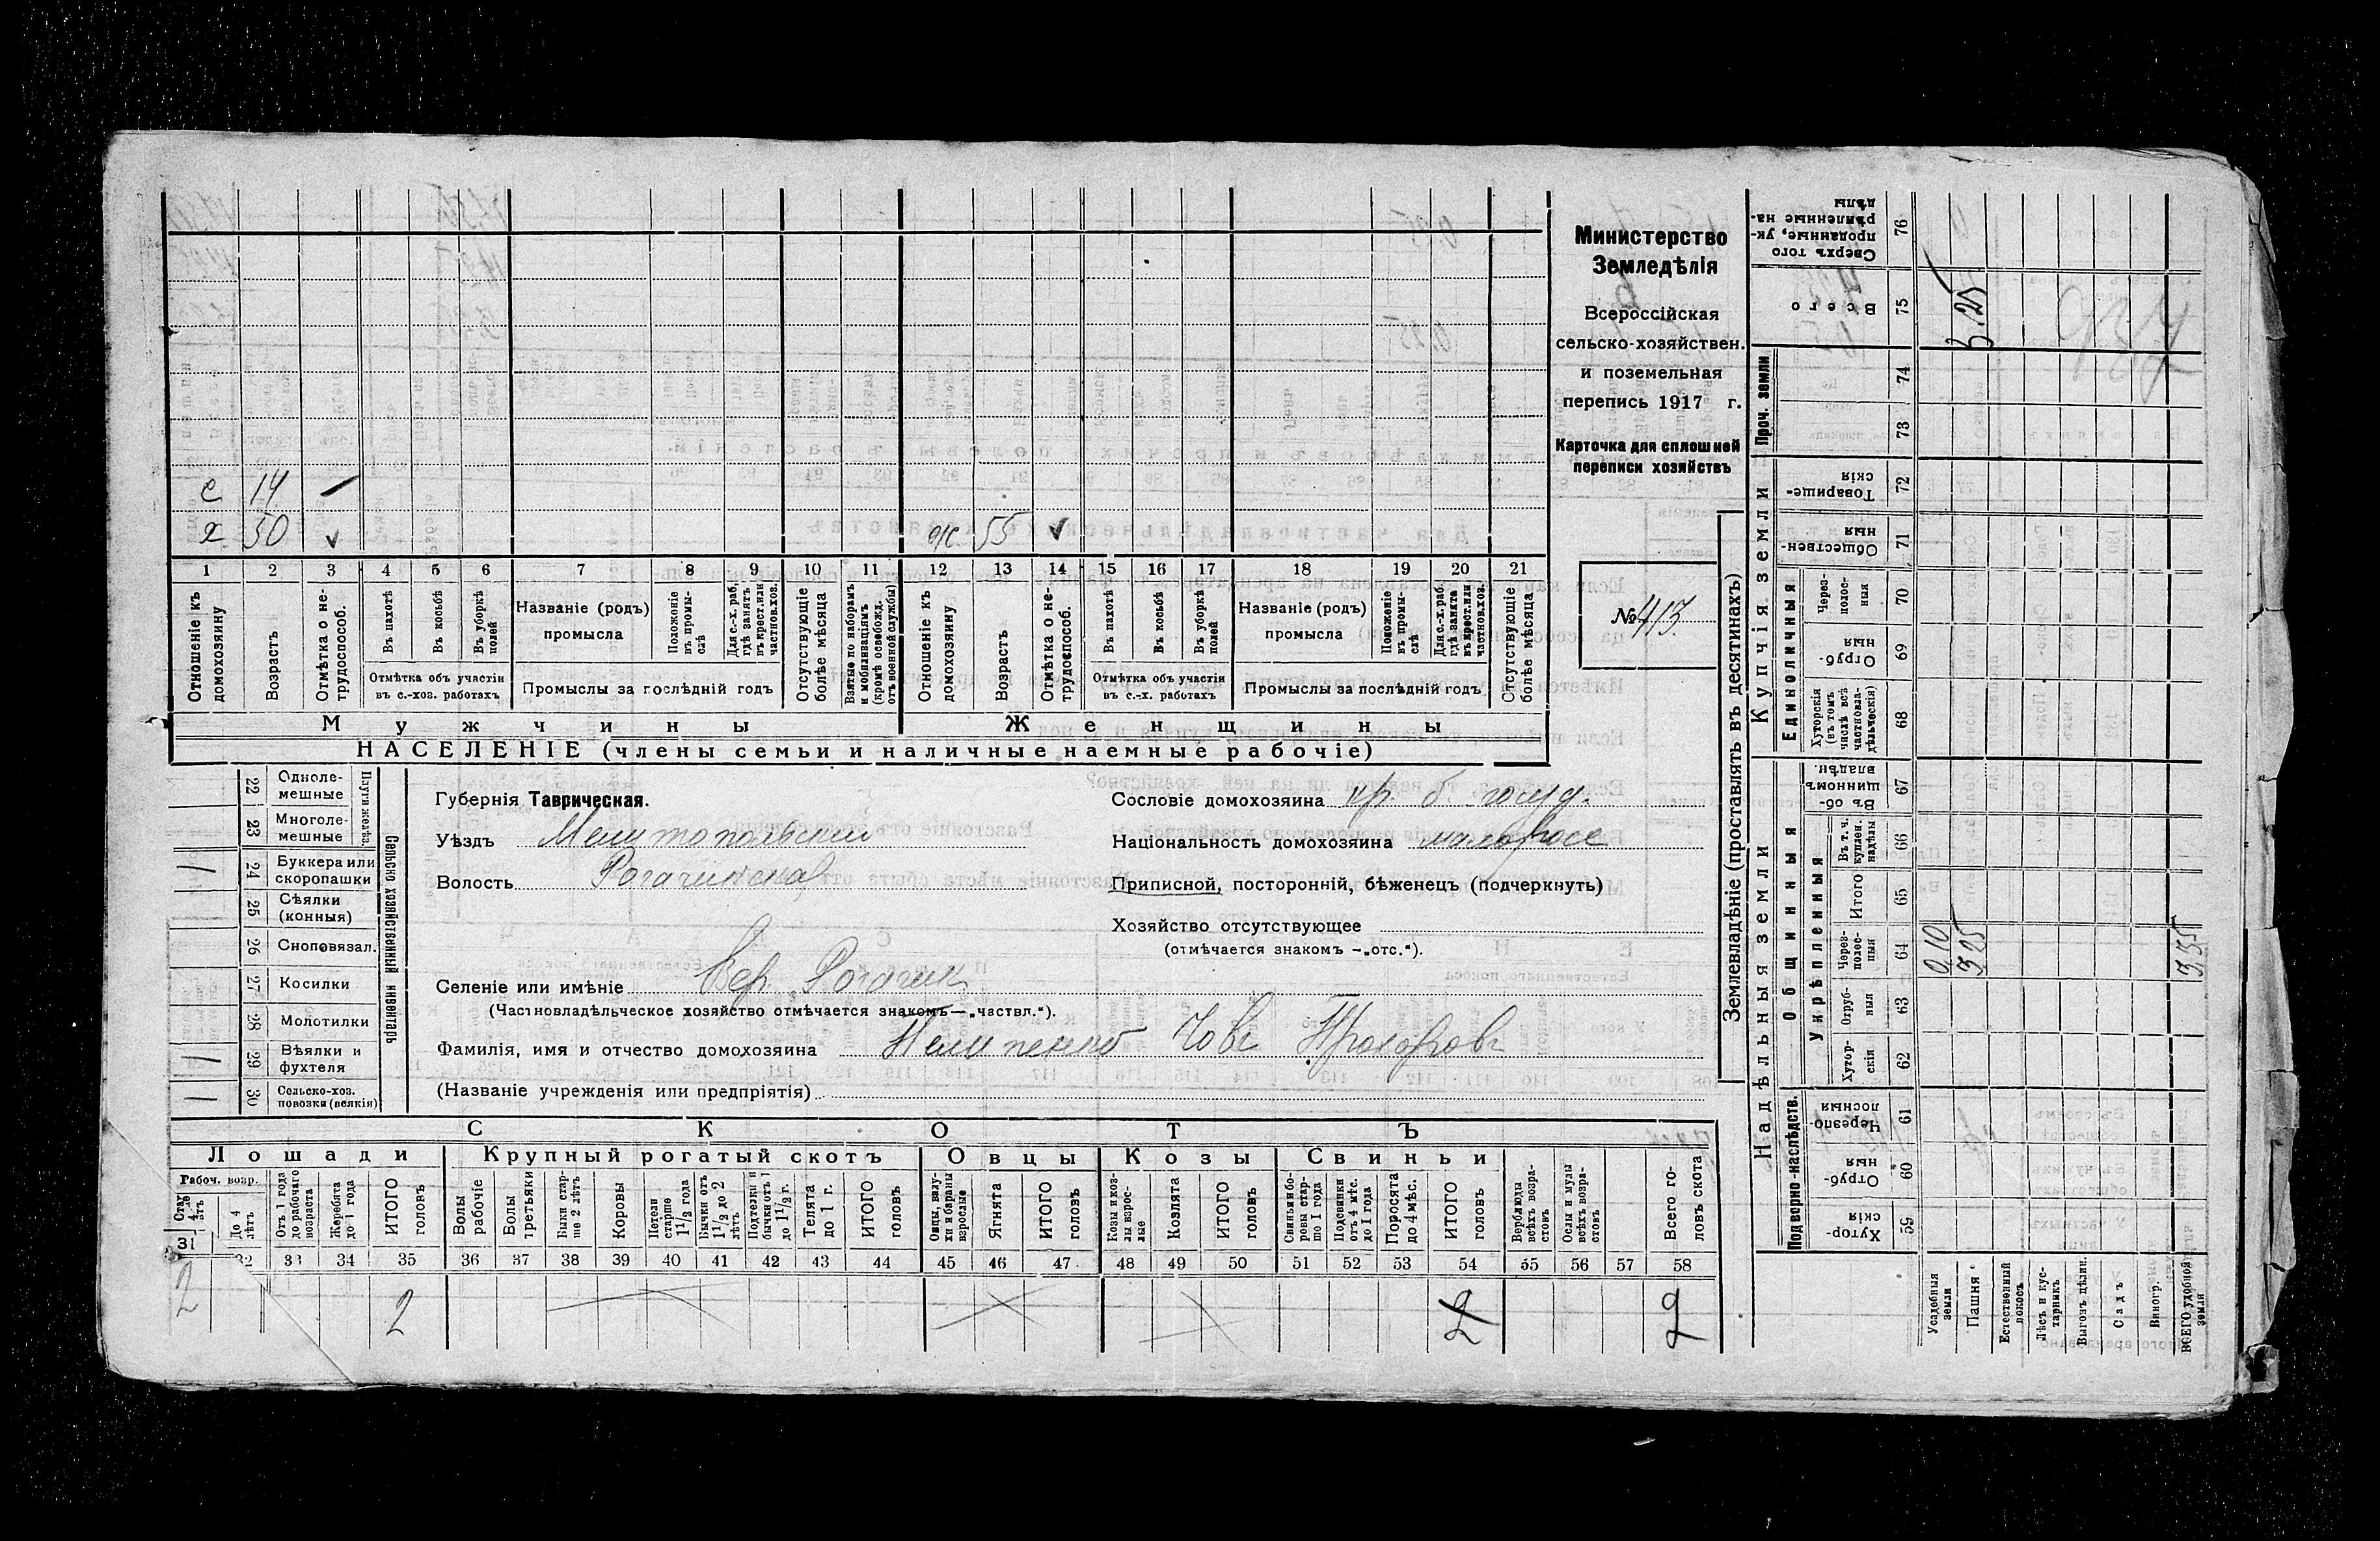 е 14 –
х 50 ✓ ж. 55 ✓
1 2 3 4 5 6 7 8 9 10 11 12 13 14 15 16 17 18 19 20 21
Отношеніе къ домохозяину
Возрастъ
Отмѣтка о нетрудоспособ.
Въ пахотѣ
Въ косьбѣ
Въ уборкѣ полей
Отмѣтка объ участіи
въ с.-хоз. работахъ
Названіе (родъ)
промысла
Положеніе въ промыслѣ
Для с.-х. раб. гдѣ занятъ въ крест. или частнов. хоз.
Промыслы за послѣдній годъ
Отсутствующіе болѣе мѣсяца
Взятые по наборамъ и мобилизаціямъ (кромѣ освобожд. отъ военной службы)
Отношеніе къ домохозяину
Возрастъ
Отмѣтка о нетрудоспособ.
Въ пахотѣ
Въ косьбѣ
Въ уборкѣ полей
Отмѣтка объ участіи
въ с.-х. работахъ
Названіе (родъ)
промысла
Положеніе въ промыслѣ
Для с.-х. раб. гдѣ занята въ крест. или частнов. хоз.
Промыслы за послѣдній годъ
Отсутствующіе болѣе мѣсяца
Мужчины Женщины
НАСЕЛЕНІЕ (члены семьи и наличные наемные рабочіе)
Министерство
Земледѣлія
Всероссійская
сельско-хозяйствен.
и поземельная
перепись 1917 г.
Карточка для сплошней
переписи хозяйствъ
№ 413.
Сельско хозяйственный инвентарь
Плуги желѣз.
22 Одноле-
мешные
23 Многоле-
мешные
1 24 Буккера или
скоропашки
25 Сѣялки
(конныя)
26 Сноповязал.
27 Косилки
28 Молотилки
1 29 Вѣялки и
фухтеля
1 30 Сельско-хоз.
повозки (всякія)
Губернія Таврическая.
Уѣздъ Мелитопольский
Волость Рогачикска
Селеніе или имѣніе Вер. Рогачик
(Частновладѣльческое хозяйство отмѣчается знакомъ—„частвл.“).
Фамилія, имя и отчество домохозяина Пилипенко Іовъ Прохоровъ
(Названіе учрежденія или предпріятія)
Сословіе домохозяина кр. б. госуд.
Національность домохозяина малоросс
Приписной, посторонній, бѣженецъ (подчеркнуть)
Хозяйство отсутствующее
(отмѣчается знакомъ —„отс.“).
СКОТЪ
Лошади Крупный рогатый скотъ Овцы Козы Свиньи
Рабоч. возр.
До 4 лѣтъ
Отъ 1 года до рабочаго возраста
Жеребята до 1 года
ИТОГО головъ
Волы рабочіе
Волы третьяки
Быки старше 2 лѣтъ
Коровы
Нетели старше 1 1/2 года
Бычки отъ 1 1/2 до 2 лѣтъ
Подтелки и бычки отъ 1 до 1 1/2 г.
Телята до 1 г.
ИТОГО головъ
Овцы, валухи и бараны взрослые
Ягнята
ИТОГО головъ
Козы и козлы взрослые
Козлята
ИТОГО головъ
Свиньи и боровы старше 1 года
Подсвинки отъ 4 мѣс. до 1 года
Поросята до 4 мѣс.
ИТОГО головъ
Верблюды всѣхъ возрастовъ
Ослы и мулы всѣхъ возрастовъ
Всего головъ скота
31 32 33 34 35 36 37 38 39 40 41 42 43 44 45 46 47 48 49 50 51 52 53 54 55 56 57 58
2 2 2 2
Землевладѣніе (проставлять въ десятинахъ)
Купчія земли
Надѣльныя земли
Единоличныя
Общинныя
Укрѣпленныя
Подворно-наслѣдств.
Проч. земли
Сверхъ того проданные, укрѣпленные надѣлы 76
Всего 75 3.25
74
73
Товарищескія 72
Общественныя 71
Черезполосныя 70
Отрубныя 69
Хуторскія (въ томъ числѣ всѣ частновладѣльческія) 68
Въ общинномъ владѣн. 67
Въ т. ч. куплен. надѣлы 66
Итого 65
Черезполосныя 64 0,10 3 25 3,35
Отрубныя 63
Хуторскія 62
Черезполосныя 61
Отрубныя 60
Хуторскія 59
Усадебныя земли
Пашня
Естественный покосъ
Лѣсъ и кустарникъ
Выгонъ цѣлин.
Садъ
Виногр.
ВСЕГО удобной земли